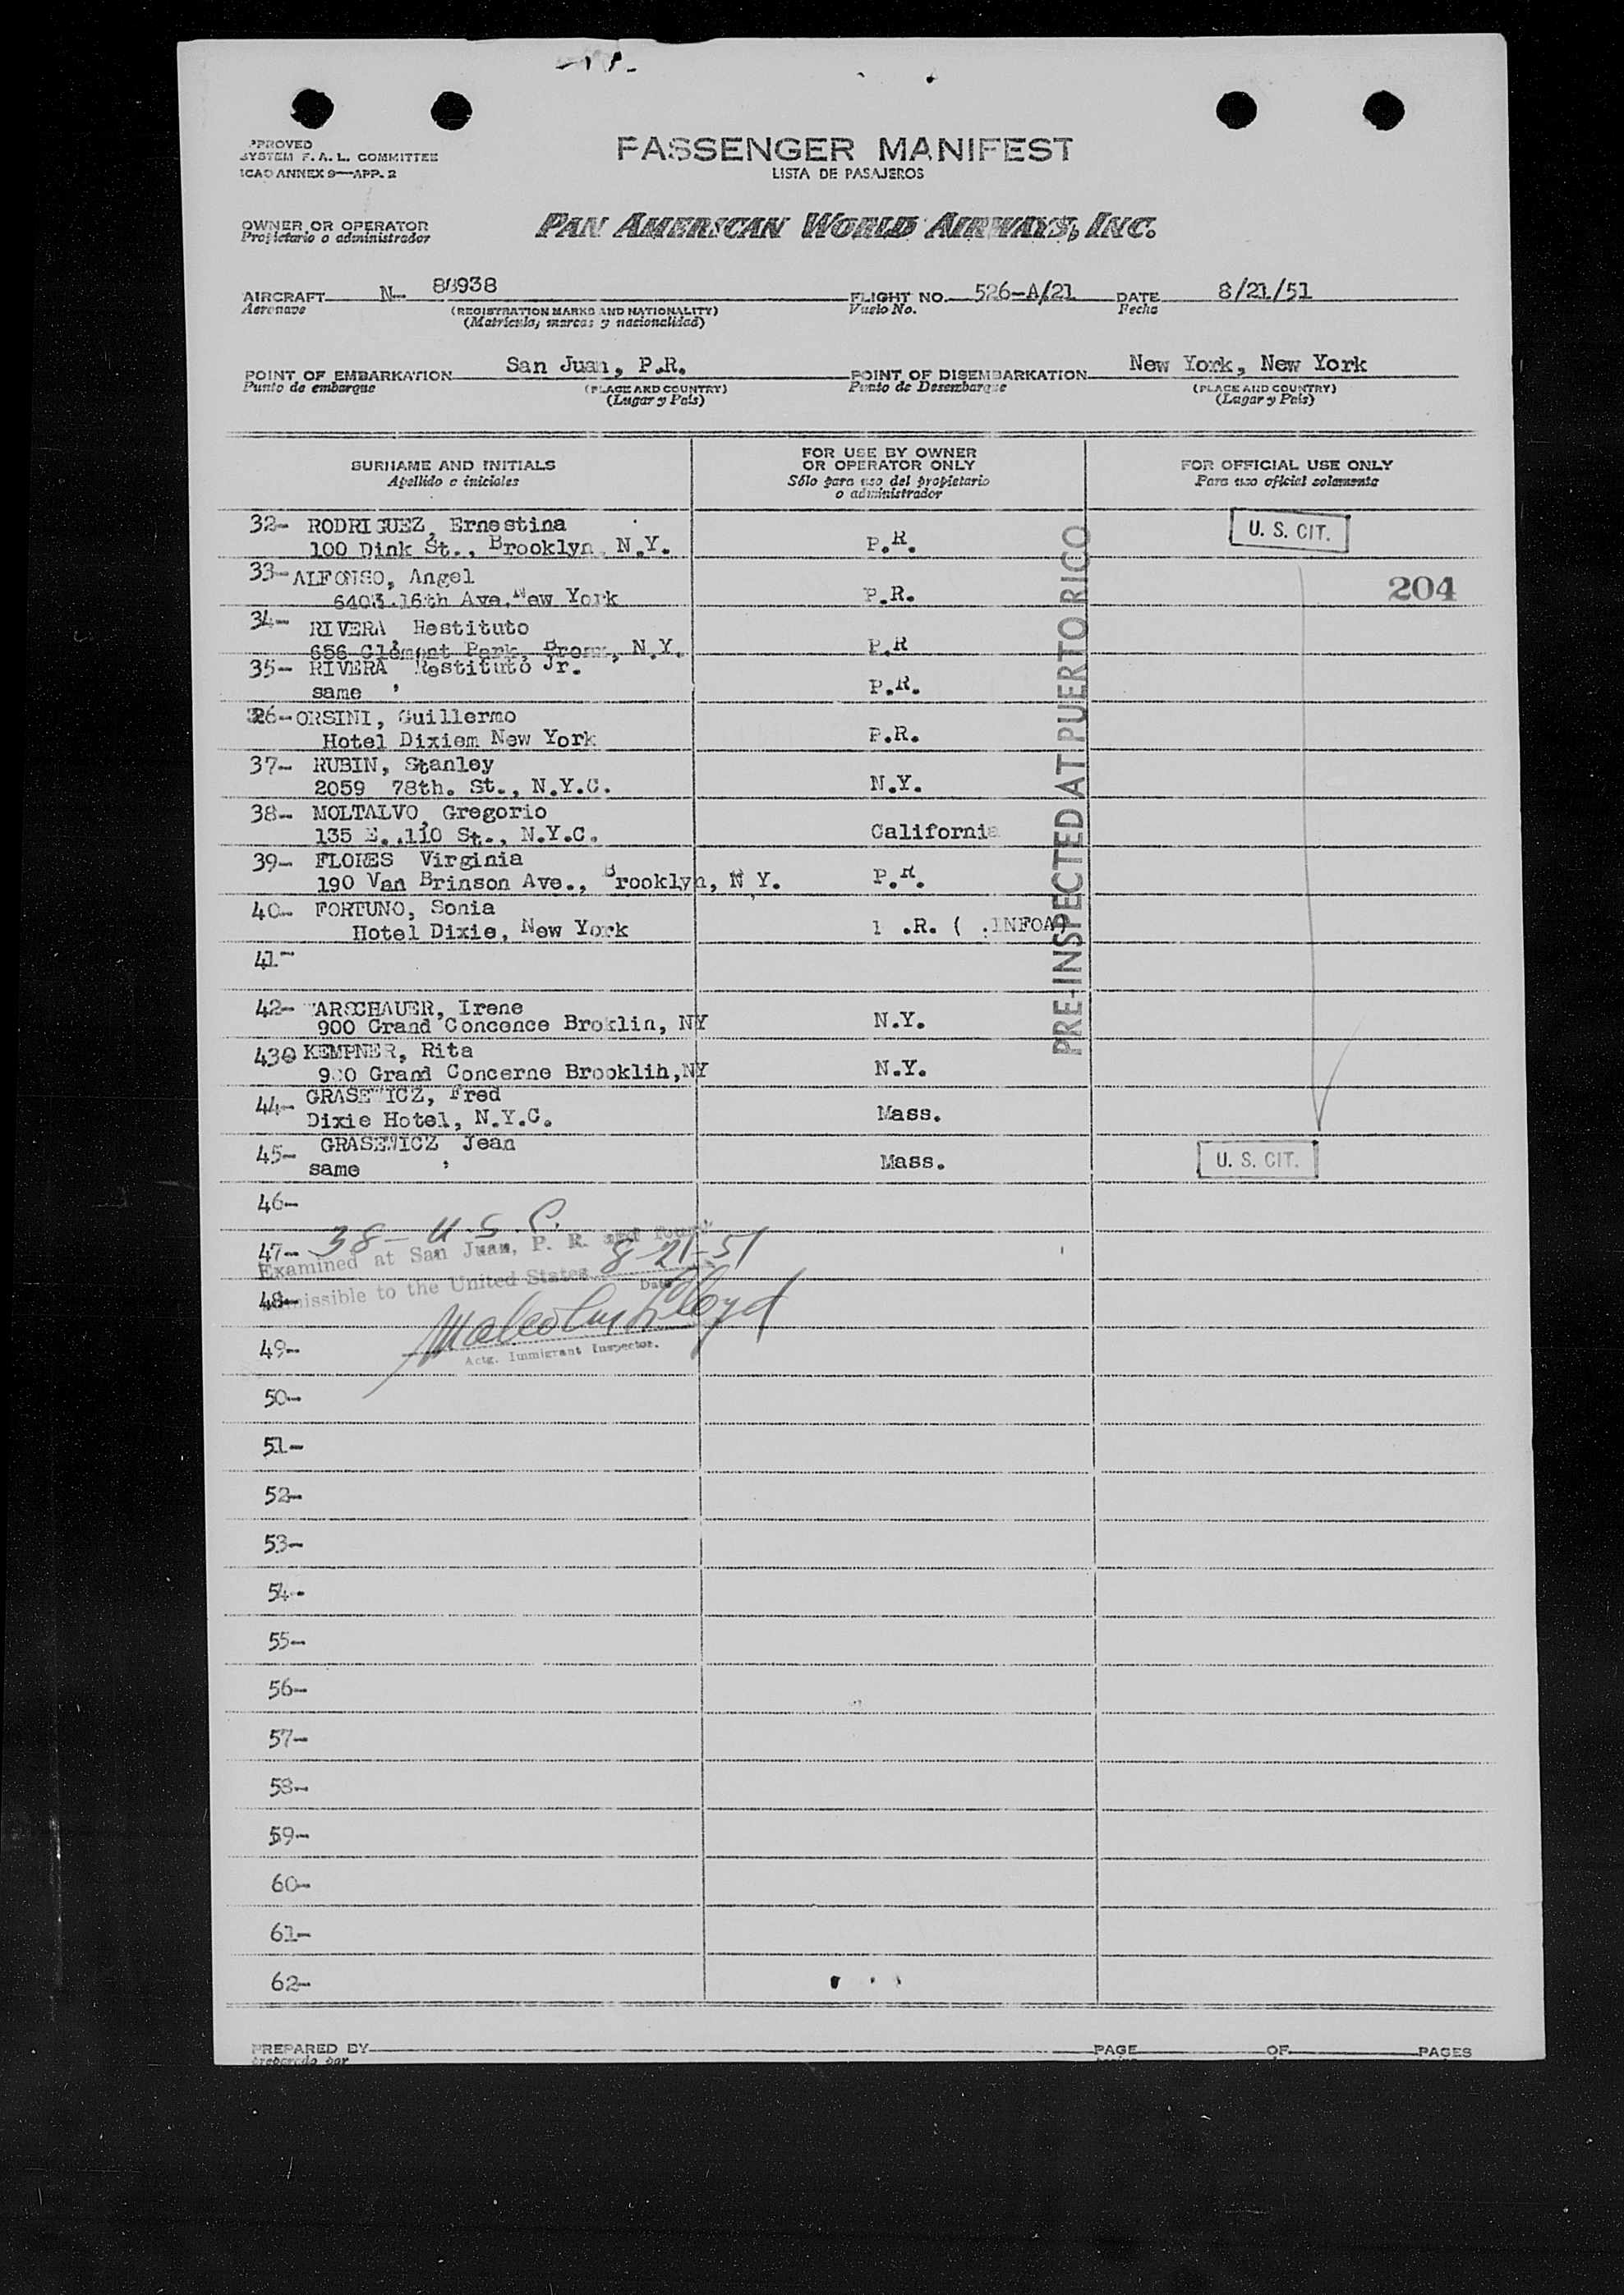 PPROVED
SYSTEM F. A. L. COMMITTEE
ICAO ANNEX 9—APP. 2
PASSENGER MANIFEST
LISTA DE PASAJEROS
OWNER OR OPERATOR
Propietario o administrador
PAN AMERICAN WORLD AIRWAYS, INC.
AIRCRAFT N- 88938
Aeronave
(REGISTRATION MARKS AND NATIONALITY)
(Matricula, marcas y nacionalidad)
FLIGHT NO. 526-A/21
Vuelo No.
DATE 8/21/51
Fecha
POINT OF EMBARKATION San Juan, P.R.
Punto de embarque
(PLACE AND COUNTRY)
(Lugar y Pais)
POINT OF DISEMBARKATION New York, New York
Punto de Desembarque
(PLACE AND COUNTRY)
(Lugar y Pais)
SURNAME AND INITIALS
Apellido e iniciales
FOR USE BY OWNER
OR OPERATOR ONLY
Sólo para uso del propietario
o administrador
FOR OFFICIAL USE ONLY
Para uso oficial solamente
32- RODRIGUEZ, Ernestina
100 Dink St., Brooklyn, N.Y. P.R.
U. S. CIT.
33- ALFONSO, Angel
6403 16th Ave. New York P.R.
204
34- RIVERA, Restituto
656 Clemont Park, Bronx, N.Y. P.R
35- RIVERA, Restituto Jr.
same P.R.
36- ORSINI, Guillermo
Hotel Dixiem New York P.R.
37- RUBIN, Stanley
2059 78th. St., N.Y.C. N.Y.
38- MOLTALVO, Gregorio
135 E. 110 St., N.Y.C. California
39- FLORES Virginia
190 Van Brinson Ave., Brooklyn, N.Y. P.R.
40- FORTUNO, Sonia
Hotel Dixie, New York .R. ( .INFOA)
41-
42- ARSCHAUER, Irene
900 Grand Concence Broklin, NY N.Y.
430 KEMPNER, Rita
900 Grand Concerne Brooklih, NY N.Y.
44- GRASEWICZ, Fred
Dixie Hotel, N.Y.C. Mass.
45- GRASEWICZ, Jean
same Mass.
U. S. CIT.
PRE-INSPECTED AT PUERTO RICO
46-
47- 38- U.S.C.
Examined at San Juan, P. R. and found
8-21-51
48- missible to the United States
Date
Malcolm Lloyd
49-
Actg. Immigrant Inspector.
50-
51-
52-
53-
54-
55-
56-
57-
58-
59-
60-
61-
62-
PREPARED BY
preparado por
PAGE OF PAGES